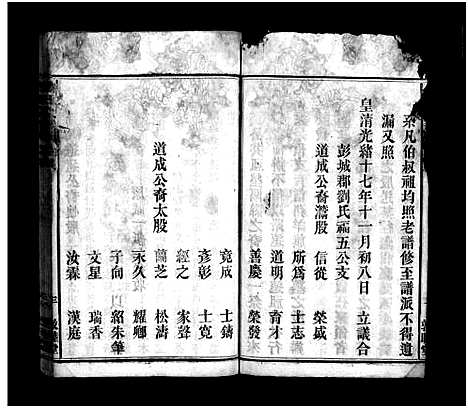 余凡伯叔祖均照老譜修至譜派不得遺
漏又照
皇清光緒十七年十一月初八日　立議合
彭城郡劉氏福五公支
道成公裔瀟股　信從　榮盛
所為　士志
道明　育才
善慶　榮發
竟成　士鑄
彥彰　士寬
經之　家聲
道成公裔太股　蘭芝　松濤
永久　耀卿
子向　以紹朱筆
文星　瑞香
汝霖　漢庭